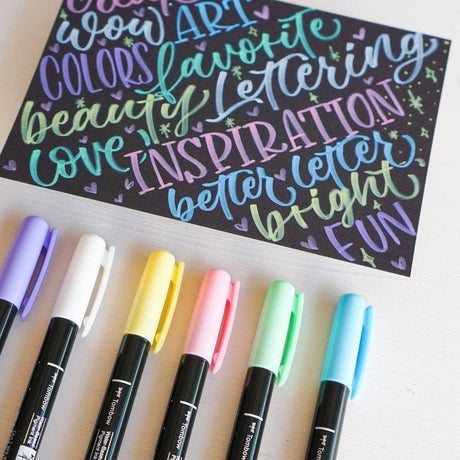 wow ART
COLORS favorite
beauty Lettering
love, INSPIRATION
better letter
bright
FUN
Tombow
Tombow
Tombow
Tombow
Tombow